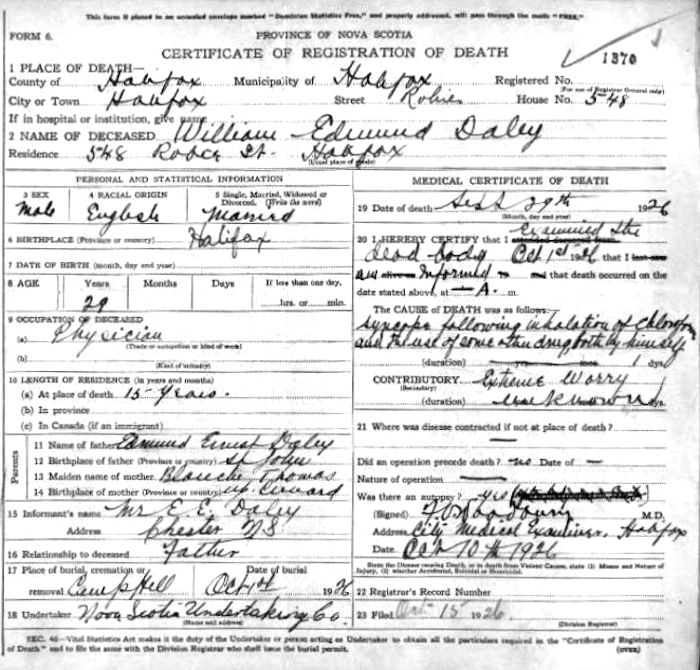 This form if placed in an unsealed envelope marked "Dominion Statistics Free," and properly addressed, will pass through the mails "FREE."
FORM 6.
PROVINCE OF NOVA SCOTIA
CERTIFICATE OF REGISTRATION OF DEATH
1370
1 PLACE OF DEATH—
County of Halifax Municipality of Halifax Registered No.
(For use of Registrar General only)
City or Town Halifax Street Robie House No. 548
If in hospital or institution, give name
2 NAME OF DECEASED William Edmund Daley
Residence 548 Robie St. Halifax
(Usual place of abode)
PERSONAL AND STATISTICAL INFORMATION
3 SEX
Male
4 RACIAL ORIGIN
English
5 Single, Married, Widowed or Divorced. (Write the word)
Married
6 BIRTHPLACE (Province or country) Halifax
7 DATE OF BIRTH (month, day and year)
8 AGE Years Months Days If less than one day,
29 hrs. or min.
9 OCCUPATION OF DECEASED
(a) Physician
(Trade or occupation or kind of work)
(b)
(Kind of industry)
10 LENGTH OF RESIDENCE (in years and months)
(a) At place of death 15 years.
(b) In province
(c) In Canada (if an immigrant)
Parents
11 Name of father Edmund Ernest Daley
12 Birthplace of father (Province or country) St John
13 Maiden name of mother Blanche Thomas
14 Birthplace of mother (Province or country)
15 Informant's name Mr E. E. Daley
Address Chester N S
16 Relationship to deceased Father
17 Place of burial, cremation or removal Camp Hill
Date of burial Oct 1st 1926
18 Undertaker Nova Scotia Undertaking Co.
(Name and address)
MEDICAL CERTIFICATE OF DEATH
19 Date of death Sept 29th 1926
(Month, day and year)
20 I HEREBY CERTIFY that I attended deceased from Examined the
dead body Oct 1st 1926 that I last saw
am alive Informed and that death occurred on the
date stated above, at — A. m.
The CAUSE of DEATH was as follows:
Syncope following inhalation of Chloroform
and the use of some other drug both by himself
(duration) 1 dys.
CONTRIBUTORY Extreme Worry
(Secondary)
(duration) unknown dys.
21 Where was disease contracted if not at place of death?
—
Did an operation precede death? no Date of —
Nature of operation —
Was there an autopsy? yes
(Signed) M.D.
Address City Medical Examiner, Halifax
Date Oct 10th 1926
State the Disease causing Death, or in death from Violent Causes, state (1) Means and Nature of Injury, (2) whether Accidental, Suicidal or Homicidal.
22 Registrar's Record Number
23 Filed Oct 15 1926
(Division Registrar)
SEC. 46—Vital Statistics Act makes it the duty of the Undertaker or person acting as Undertaker to obtain all the particulars required in the "Certificate of Registration
of Death" and to file the same with the Division Registrar who shall issue the burial permit.
(OVER)